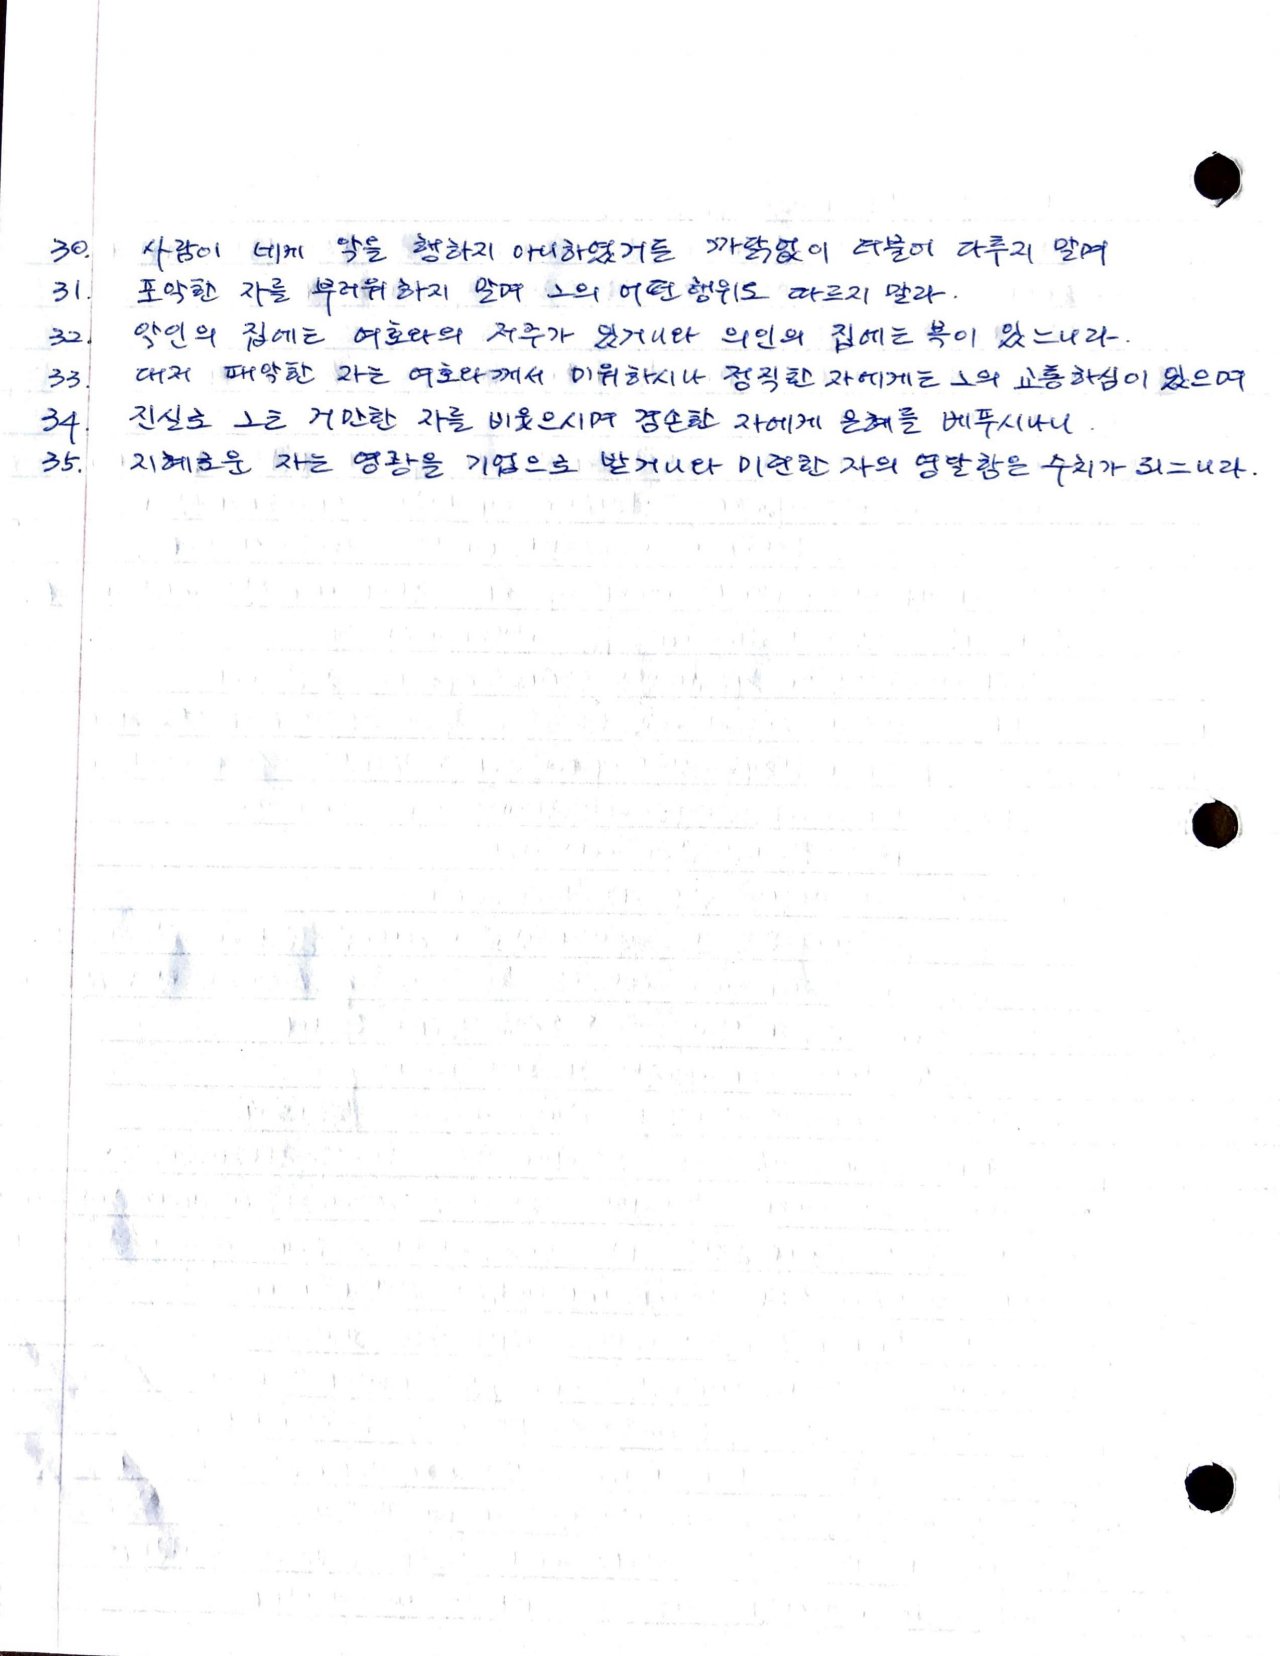 30. 사람이 네게 악을 행하지 아니하였거든 까닭없이 더불어 다투지 말며
31. 포악한 자를 부러워하지 말며 그의 어떤 행위도 따르지 말라.
32. 악인의 집에는 여호와의 저주가 있거니와 의인의 집에는 복이 있느니라.
33. 대저 패악한 자는 여호와께서 미워하시나 정직한 자에게는 그의 교통하심이 있으며
34. 진실로 그는 거만한 자를 비웃으시며 겸손한 자에게 은혜를 베푸시나니.
35. 지혜로운 자는 영광을 기업으로 받거니와 미련한 자의 영달함은 수치가 되느니라.